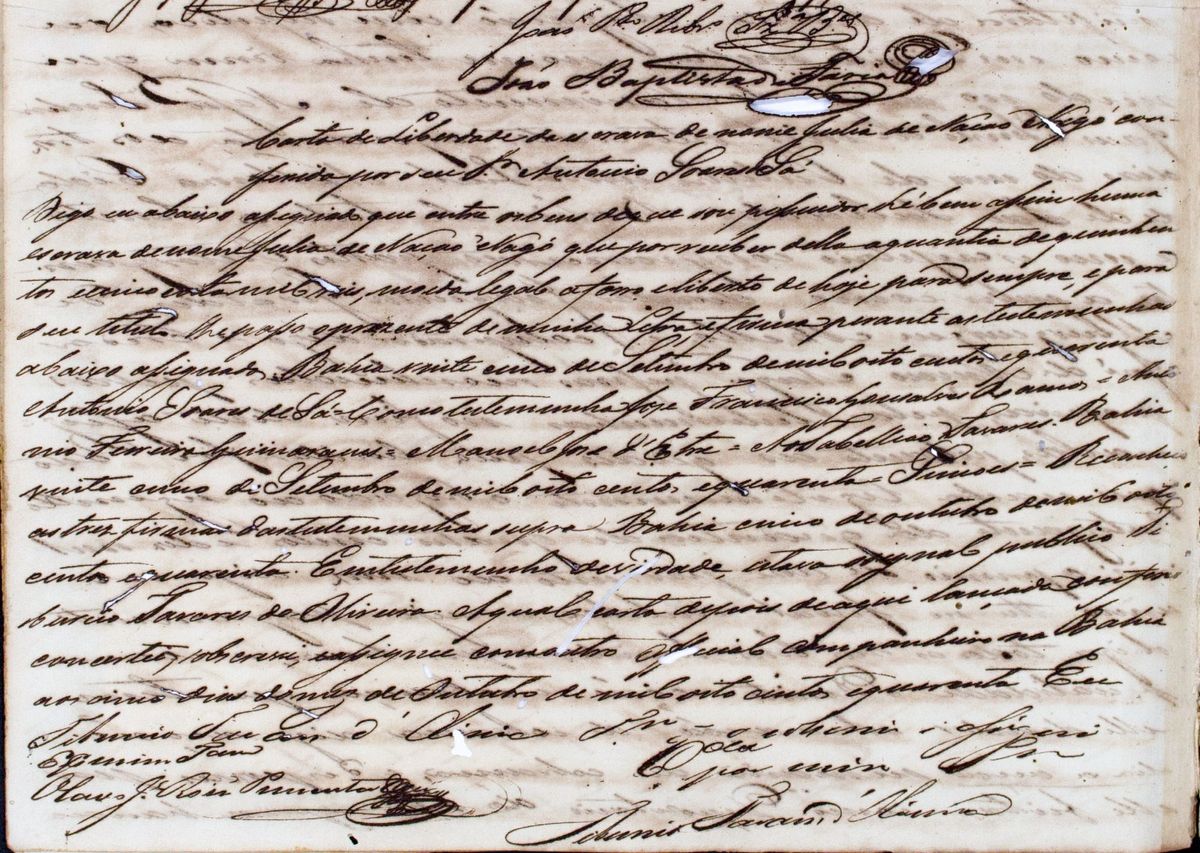 João Baptista de Faria
Carta de Liberdade da escrava de nome Julia de Nação Nagó con-
ferida por seu Sr. Antonio Soares de Sá
Digo eu abaixo assignado que entre os bens de que sou possuidor hé bem assim huma
escrava de nome Julia de Nação Nagó que por receber della a quantia de quinhen
tos e cincoenta mil reis, moeda legal a forro e liberto de hoje para sempre, e para
seu titulo lhe passo o prezente de minha letra e firma perante as testemunhas
abaixo assignadas. Bahia vinte cinco de Setembro de mil oito centos e quarenta
Antonio Soares de Sá = Como testemunha Joze Francisco Gonsalves Ramos =
nio Ferreira Guimaraens = Manoel Joze d' = Ao Tabellião Tavares. Bahia
vinte cinco de Setembro de mil oito centos e quarenta = = Reconheço
as trez firmas das testemunhas supra Bahia cinco de outubro de mil oito
centos e quarenta Em testemunho de verdade, estava o signal publico Ti
burcio Tavares de Oliveira A qual carta depois de aqui lançada conferi
concertei, sobscrevi, e assignei com outro Official companheiro na Bahia
aos cinco dias do mez de Outubro de mil oito centos e quarenta Eu
Tiburcio Tavares d'Oliveira sobscrevi e assignei
E por mim Tam
por mim
Olavo J. Pimenta
Tiburcio Tavares d'Oliveira